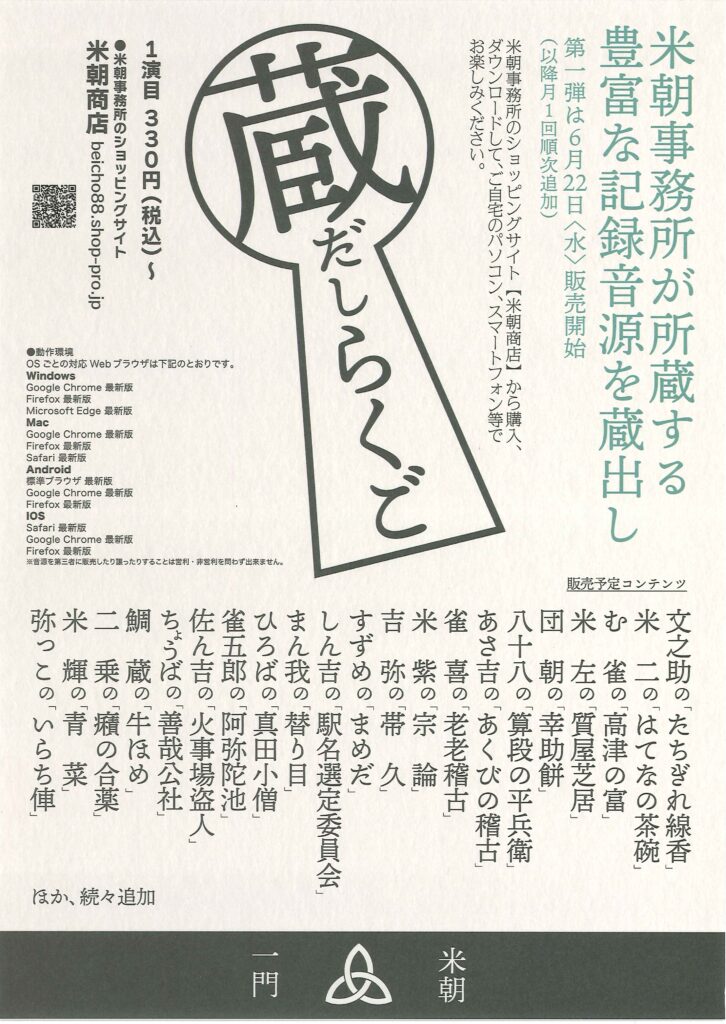 米朝事務所が所蔵する
豊富な記録音源を蔵出し
第一弾は6月22日〈水〉販売開始
（以降月1回順次追加）
米朝事務所のショッピングサイト【米朝商店】から購入、
ダウンロードして、ご自宅のパソコン、スマートフォン等で
お楽しみください。
蔵だしらくご
1演目 330円（税込）〜
●米朝事務所のショッピングサイト
米朝商店 beicho88.shop-pro.jp
●動作環境
OSごとの対応Webブラウザは下記のとおりです。
Windows
Google Chrome 最新版
Firefox 最新版
Microsoft Edge 最新版
Mac
Google Chrome 最新版
Firefox 最新版
Safari 最新版
Android
標準ブラウザ 最新版
Google Chrome 最新版
Firefox 最新版
IOS
Safari 最新版
Google Chrome 最新版
Firefox 最新版
※音源を第三者に販売したり譲ったりすることは営利・非営利を問わず出来ません。
販売予定コンテンツ
文之助の「たちぎれ線香」
米二の「はてなの茶碗」
む雀の「高津の富」
米左の「質屋芝居」
団朝の「幸助餅」
八十八の「算段の平兵衛」
あさ吉の「あくびの稽古」
雀喜の「老老稽古」
米紫の「宗論」
吉弥の「帯久」
すずめの「まめだ」
しん吉の「駅名選定委員会」
まん我の「替り目」
ひろばの「真田小僧」
雀五郎の「阿弥陀池」
佐ん吉の「火事場盗人」
ちょうばの「善哉公社」
鯛蔵の「牛ほめ」
二乗の「癪の合薬」
米輝の「青菜」
弥っこの「いらち俥」
ほか、続々追加
米朝
一門